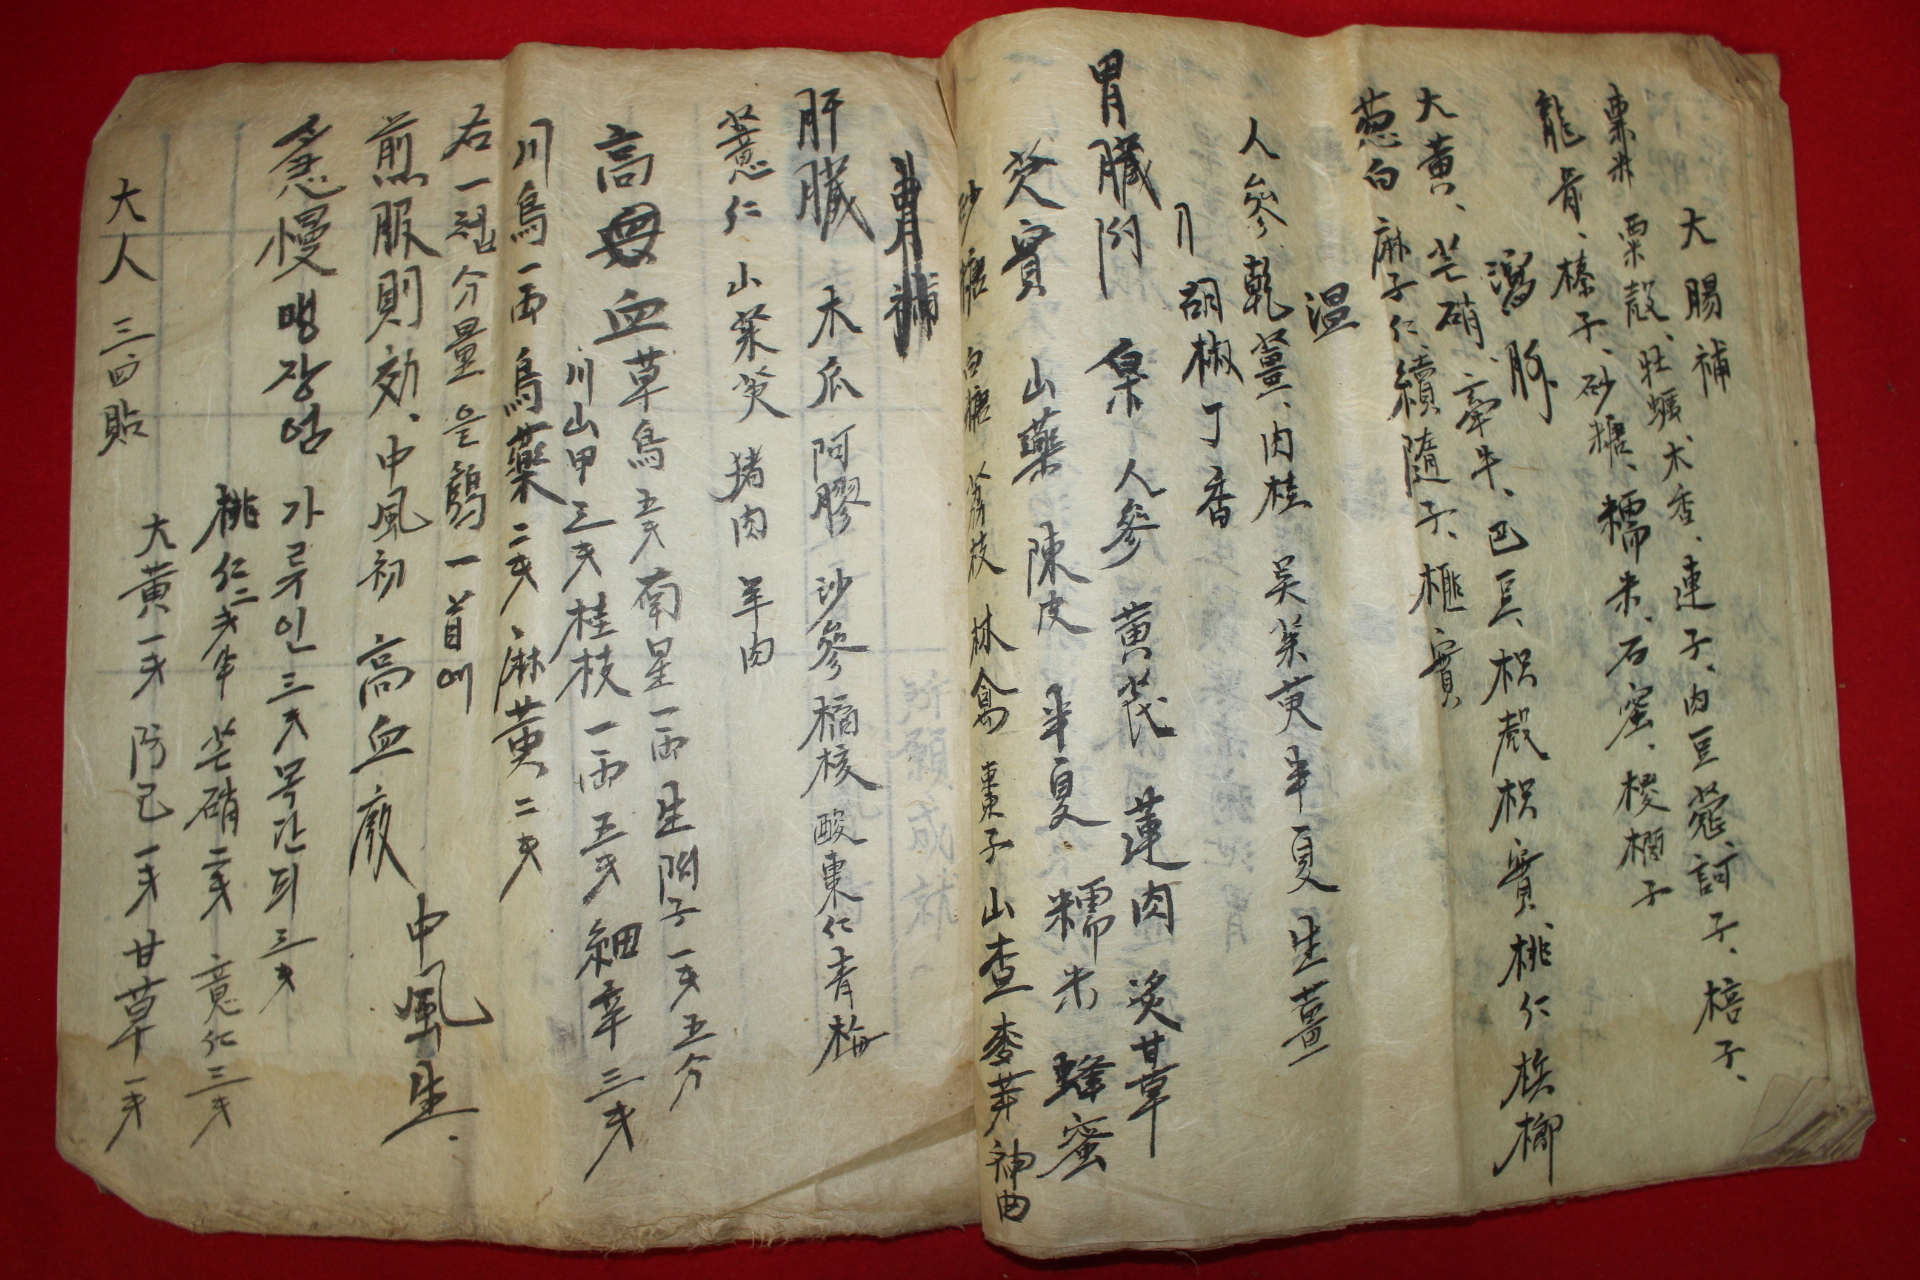 大腸補
粟米 粟殼、牡蠣木香、連子、肉豆蔲、訶子、棓子、
龍骨、榛子、砂糖、糯米、石蜜、椶櫚子
瀉
大黃、芒硝、牽牛、巴豆、枳殼枳實、桃仁 檳榔
葱白 麻子仁、續隨子、榧實
温
人參乾薑、肉桂 吳茱萸半夏生薑
胡椒丁香
胃臟 人參 黃芪 蓮肉 炙甘草
芡實 山藥 陳皮 半夏 糯米 蜂蜜
砂糖 白糖 荔枝 林禽 棗子 山査 麥芽 神曲
補
肝臟 木瓜 阿膠 沙參 橘核 酸棗仁 青梅
薏仁 山茱萸 猪肉 羊肉
高血 草烏五戔 南星一兩 生附子一戔五分
川山甲三戔 桂枝一兩五戔 細辛三戔
川烏一兩 烏藥二戔 麻黃二戔
右一貼分量을 鷄一首에
煎服則効、中風初 高血 中風生.
急慢맹장염 가루인三戔 목단피三戔
桃仁二戔半 芒硝二戔 薏仁三戔
大黃一戔 防己一戔 甘草一戔
大人 三四貼